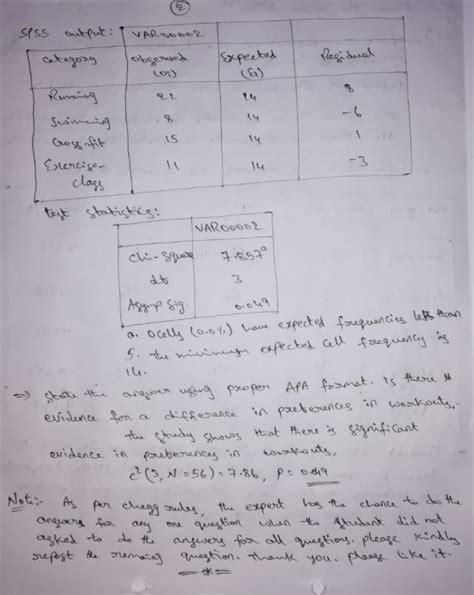 2
SPSS output: VAR00002
Category Observed Expected Residual
(Oi) (Ei)
Running 22 14 8
Swimming 8 14 -6
Cross-fit 15 14 1
Exercise- 11 14 -3
class
test statistics:
VAR00002
Chi-Square 7.857a
df 3
Asymp Sig. 0.049
a. 0 cells (0.0%) have expected frequencies less than
5. The minimum expected cell frequency is
14.
⇒ state the answer using proper APA format. Is there
evidence for a difference in preferences in workouts.
The study shows that there is significant
evidence in preferences in workouts,
c²(3, N=56) = 7.86, P = 0.049
Note:- As per chegg rules, the expert has the chance to do the
answers for any one question when the student did not
asked to do the answers for all questions. please kindly
repost the remaing question. Thank you. please like it.